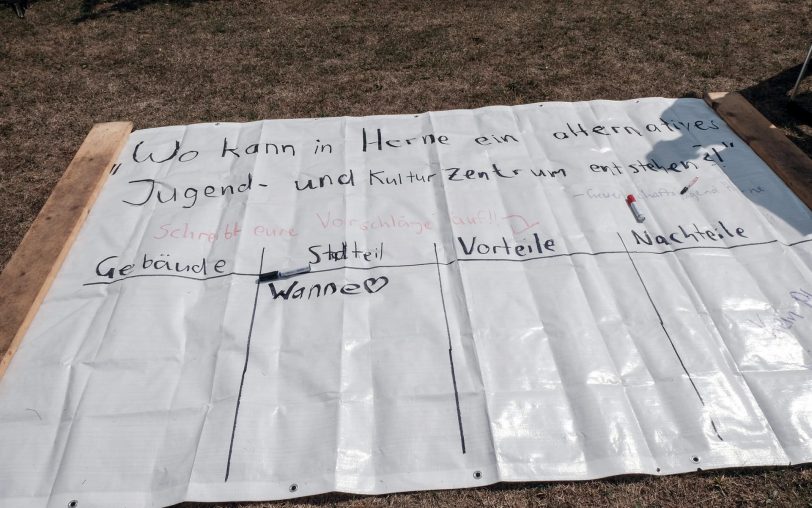 "Wo kann in Herne ein alternatives
Jugend- und Kulturzentrum entstehen?!"
Schreibt eure Vorschläge auf!!
Gebäude Stadtteil Vorteile Nachteile
Wanne♡